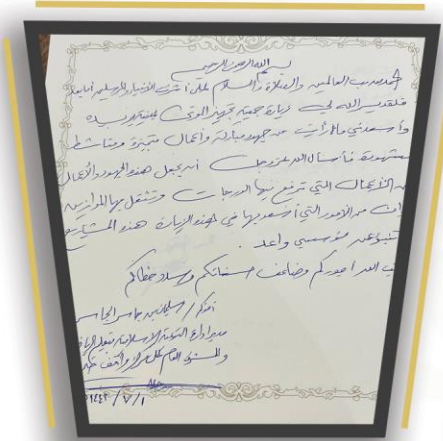 بسم الله الرحمن الرحيم
الحمد لله رب العالمين والصلاة والسلام على أشرف الأنبياء والمرسلين أما بعد
فلقد يسر الله لي زيارة جمعية تجهيز الموتى
وأسعدني ما رأيت من جهود مباركة وأعمال متميزة ومناشط
مشهودة فأسأل الله عز وجل أن يجعل هذه الجهود والأعمال
من الأعمال التي ترفع بها الدرجات وتثقل بها الموازين
وإن من الأمور التي أسعد بها في هذه الزيارة هذه المشاريع
تنبئ عن مؤسسي واعد.
الله أجوركم وضاعف حسناتكم وسدد خطاكم
أخوكم / سليمان بن جاسر الجاسر
مدير إدارة التوعية الإسلامية بتعليم
والمستشار
١٤٤٢/٧/١